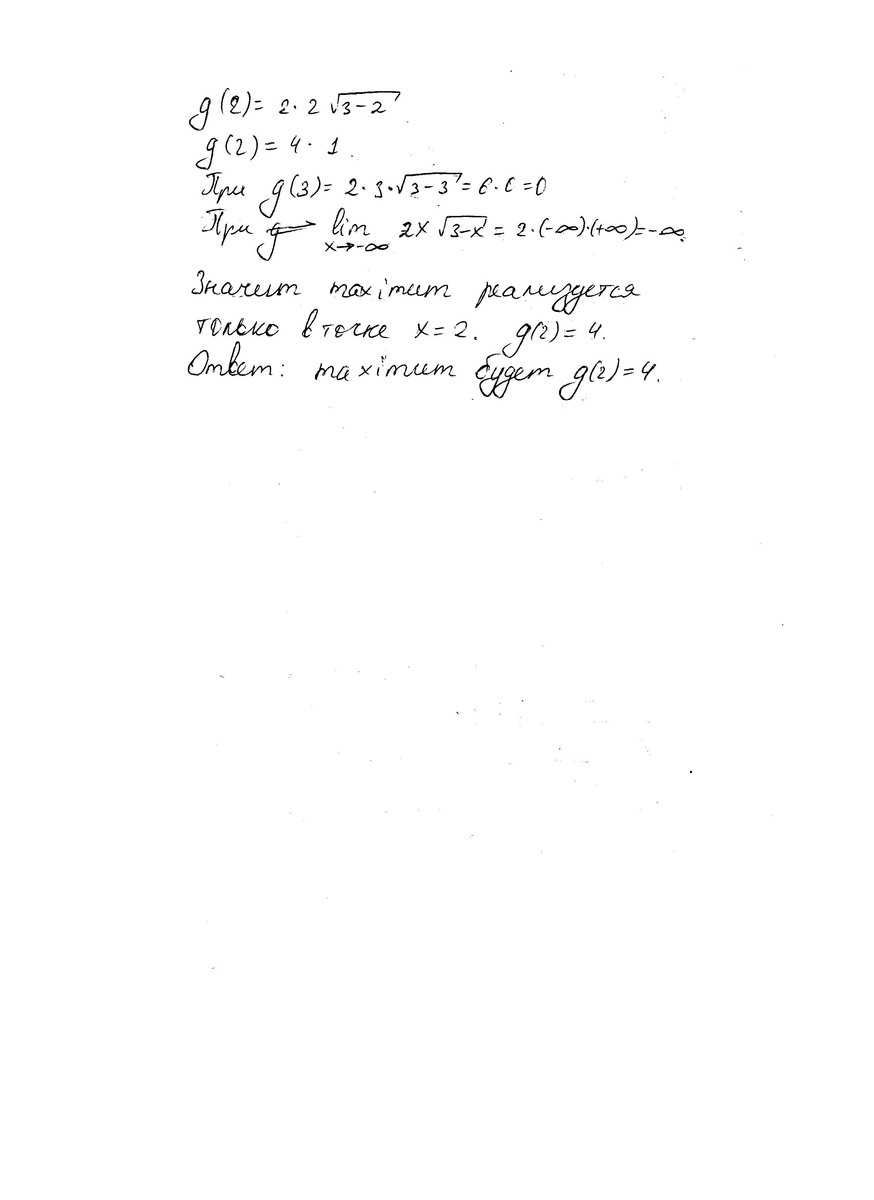 g(2)= 2·2 √3-2
g(2)= 4·1.
При g(3)= 2·3·√3-3 = 6·0=0
При lim x→-∞ 2x √3-x = 2·(-∞)·(+∞)=-∞.
Значит maximum реализуется
только в точке x=2. g(2)=4.
Ответ: maximum будет g(2)=4.